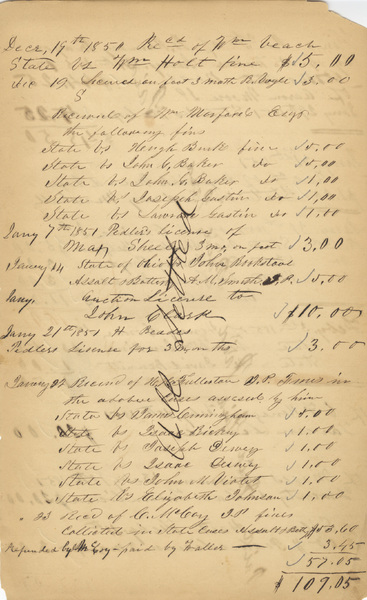 Decr, 19th 1850 Recd of Wm Veach
State vs Wm Holt fine $15,00
Dec 19 License on foot 3 month $3.00
Received of Wm Morford Esqr
the following fins
State vs Heugh Burk fine $5.00
State vs John C, Baker do $5,00
State vs John C, Baker do $1,00
State vs Joseph Gastin do $1,00
State vs Gastin do $1.00
Jany 7th 1851, Pedlers License of
Sheely 3 mo, on foot $3,00
Janury 14 State of Ohio vs John
Assalt & Battery A. M. Smith J.P. $5.00
Jany, auction License to
John Clark $10.00
Jany 21st 1851 H.
Pedlers License for 3 months $3.00
January 22 Receved of Fulleston J.P. Fines in
the above Cases assesed by him
State vs James Cunningham $5.00
State vs Isaac $1.00
State vs Joseph Dewey $1.00
State vs Isaac Dewey $1.00
State vs John M Violet $1.00
State vs Elizabeth Johnson $1.00
" 23 Recd of C. McCoy J.P. fines
Collected in State Cases Assalt & Batt 60
Refunded by McCoy - paid by Waller - $3.45
$57.05
$109.05